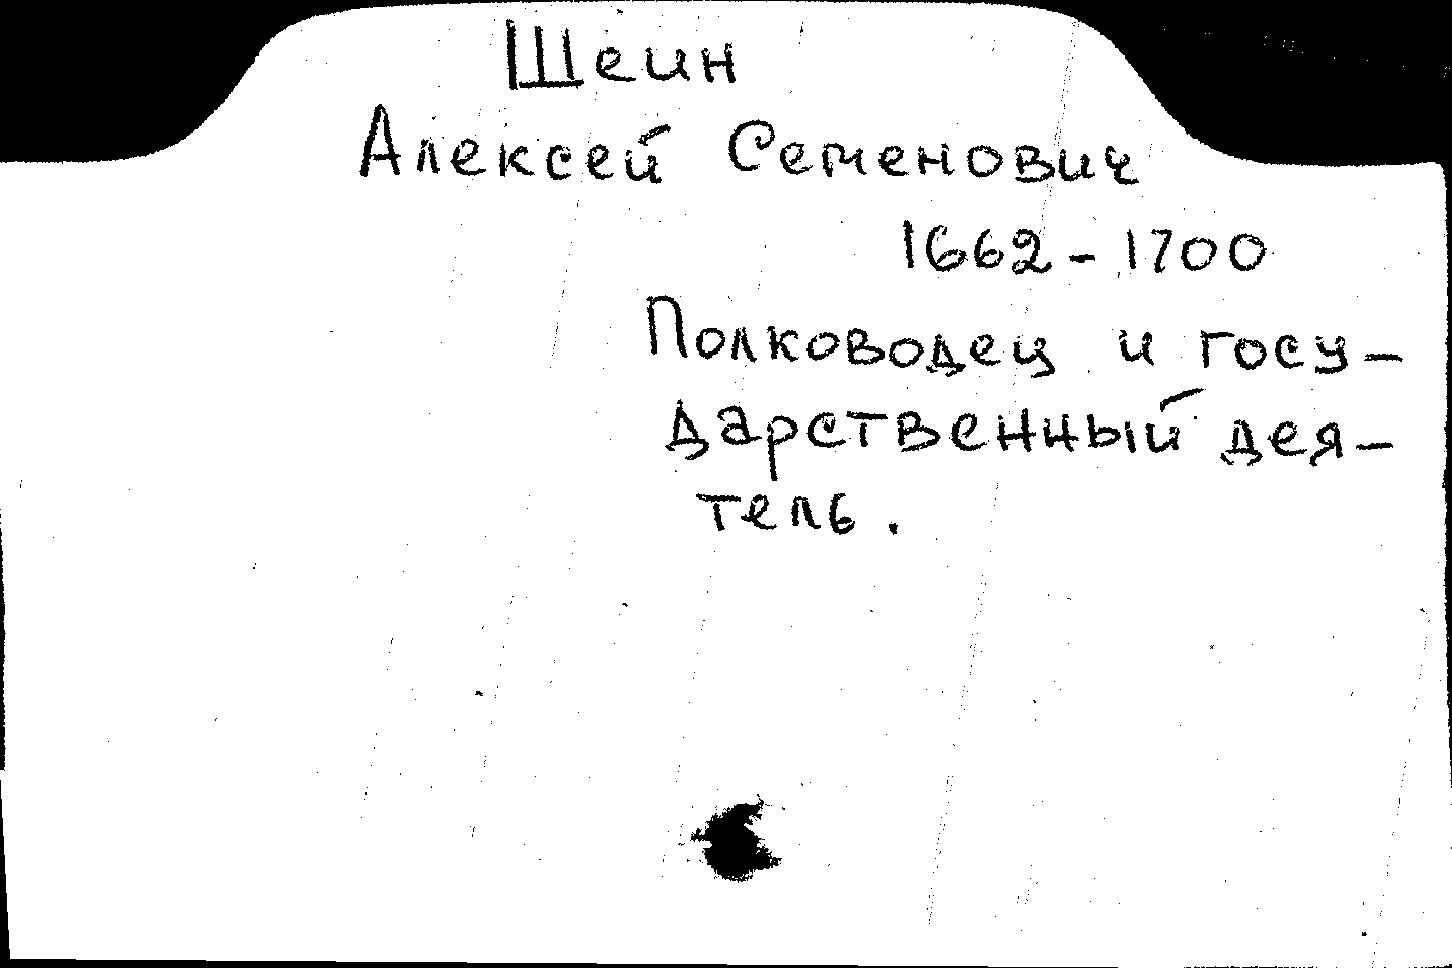 Шеин
Алексей Семенович
1662-1700
Полководец и госу-
дарственный дея-
тель.